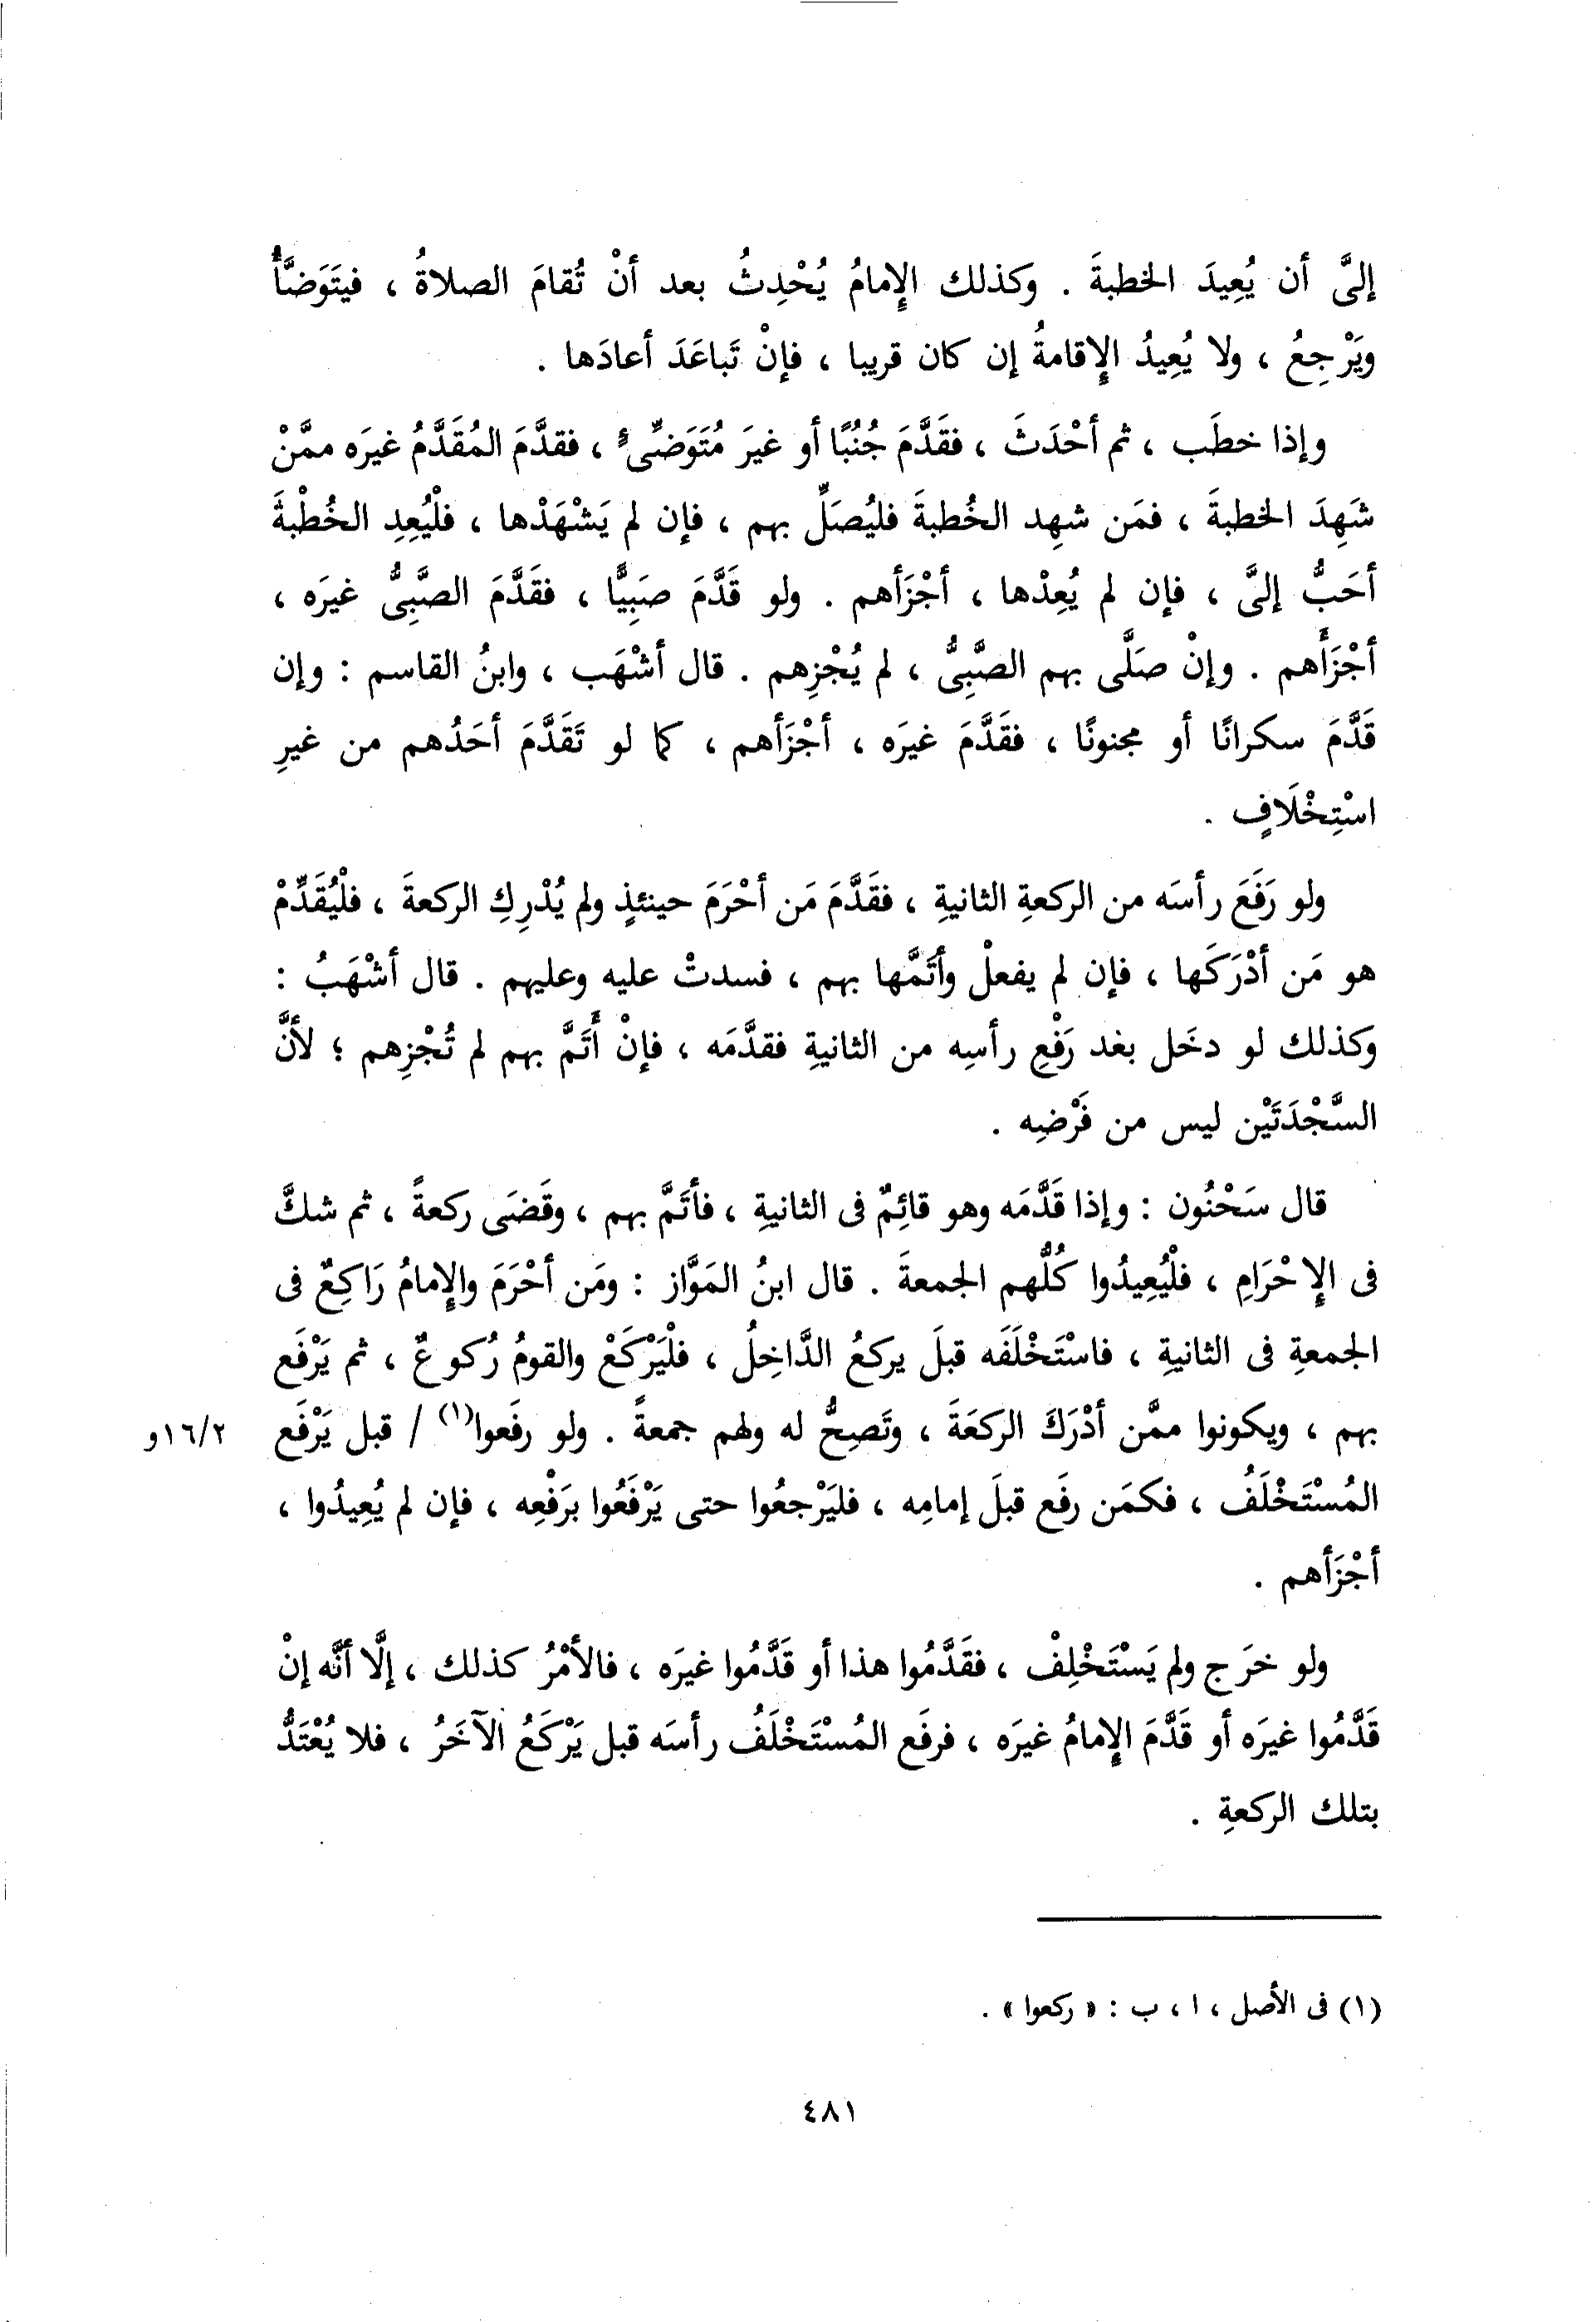 إلىَّ أن يُعِيدَ الخطبةَ . وكذلك الإِمامُ يُحْدِثُ بعد أنْ تُقامَ الصلاةُ ، فيتَوَضَّأُ
ويَرْجِعُ ، ولا يُعِيدُ الإِقامةُ إن كان قريبا ، فإنْ تَباعَدَ أعادَها .
وإذا خطَب ، ثم أحْدَثَ ، فقَدَّمَ جُنُبًا أو غيرَ مُتَوَضِّىءٍ ، فقدَّمَ المُقَدَّمُ غيرَه ممَّنْ
شَهِدَ الخطبةَ ، فمَن شهِد الخُطبةَ فليُصَلِّ بهم ، فإن لم يَشْهَدْها ، فلْيُعِدِ الخُطْبةَ
أحَبُّ إلىَّ ، فإن لم يُعِدْها ، أجْزَأهم . ولو قَدَّمَ صَبِيًّا ، فقَدَّمَ الصَّبِىُّ غيرَه ،
أجْزَأَهم . وإنْ صَلَّى بهم الصَّبِىُّ ، لم يُجْزِهم . قال أشْهَب ، وابنُ القاسم : وإن
قَدَّمَ سكرانًا أو مجنونًا ، فقَدَّمَ غيرَه ، أجْزَأهم ، كما لو تَقَدَّمَ أحَدُهم من غيرِ
اسْتِخْلَافٍ .
ولو رَفَعَ رأسَه من الركعةِ الثانيةِ ، فقَدَّمَ مَن أحْرَمَ حينئذٍ ولم يُدْرِكِ الركعةَ ، فلْيُقَدِّمْ
هو مَن أدْرَكَها ، فإن لم يفعلْ وأتَمَّها بهم ، فسدتْ عليه وعليهم . قال أشْهَبُ :
وكذلك لو دخَل بغد رَفْعِ رأسِه من الثانيةِ فقدَّمَه ، فإنْ أَتَمَّ بهم لم تُجْزِهم ؛ لأنَّ
السَّجْدَتَيْن ليس من فَرْضِه .
قال سَحْنُون : وإذا قَدَّمَه وهو قائِمٌ فى الثانيةِ ، فأتَمَّ بهم ، وقَضَى ركعةً ، ثم شكَّ
فى الإِحْرَامِ ، فلْيُعِيدُوا كُلُّهم الجمعةَ . قال ابنُ المَوَّاز : ومَن أحْرَمَ والإِمامُ رَاكِعٌ فى
الجمعةِ فى الثانيةِ ، فاسْتَخْلَفَه قبلَ يركعُ الدَّاخِلُ ، فلْيَرْكَعْ والقومُ رُكوعٌ ، ثم يَرْفَع
بهم ، ويكونوا ممَّن أدْرَكَ الركعَةَ ، وتَصِحُّ له ولهم جمعةً . ولو رفَعوا(١) / قبل يَرْفَع ١٦/٢و
المُسْتَخْلَفُ ، فكمَن رفَع قبلَ إمامِه ، فليَرْجعُوا حتى يَرْفَعُوا برَفْعِه ، فإن لم يُعِيدُوا ،
أجْزَأهم .
ولو خرَج ولم يَسْتَخْلِفْ ، فقَدَّمُوا هذا أو قَدَّمُوا غيرَه ، فالأمْرُ كذلك ، إلَّا أنَّه إنْ
قَدَّمُوا غيرَه أو قَدَّمَ الإِمامُ غيرَه ، فرفَع المُسْتَخْلَفُ رأسَه قبل يَرْكَعُ الآخَرُ ، فلا يُعْتَدُّ
بتلك الركعةِ .
(١) فى الأصل ، ا ، ب : « ركعوا » .
٤٨١